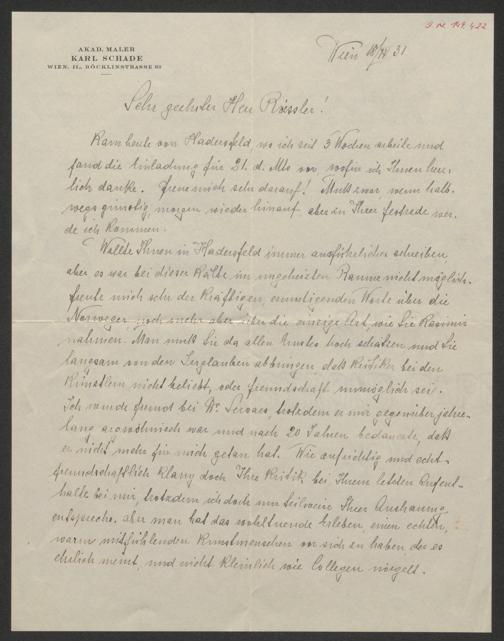 J. N. 149.422
AKAD. MALER
KARL SCHADE
WIEN, II., BÖCKLINSTRASSE
Wien 18/IV 31
Sehr geehrter Herr Roessler!
Kam heute von Hadersfeld, wo ich seit 3 Wochen arbeite und
fand die Einladung für 21. d. Mts vor, wofür ich Ihnen herz-
lich danke. Freue mich sehr darauf! Muß zwar wenn halb-
wegs günstig, morgen wieder hinauf aber zu Ihrer Festrede wer-
de ich kommen.
Wollte Ihnen in Hadersfeld immer ausführlicher schreiben
aber es war bei dieser Kälte im ungeheizten Raume nicht möglich.
Freute mich sehr der kräftigen, ermutigenden Worte über die
Norweger noch mehr aber über die einzige Art, wie Sie Kasimir
nahmen. Man muß Sie da allen Ernstes hoch schätzen und Sie
langsam von dem Irrglauben abbringen, daß Kritiker bei den
Künstlern nicht beliebt, oder Freundschaft unmöglich sei.
Ich wurde Freund bei Dr. Servaes, trotzdem er mir gegenüber jahre-
lang war und nach 20 Jahren bedauerte, daß
er nicht mehr für mich getan hat. Wie aufrichtig und echt
freundschaftlich klang doch Ihre Kritik bei Ihrem letzten Aufent-
halte bei mir, trotzdem ich doch nur teilweise Ihrer Anschauung
entspreche, aber man hat das wohltuende Erleben, einen echten,
warm mitfühlenden Kunstmenschen vor sich zu haben, der es
ehrlich meint, und nicht kleinlich wie Collegen nörgelt.